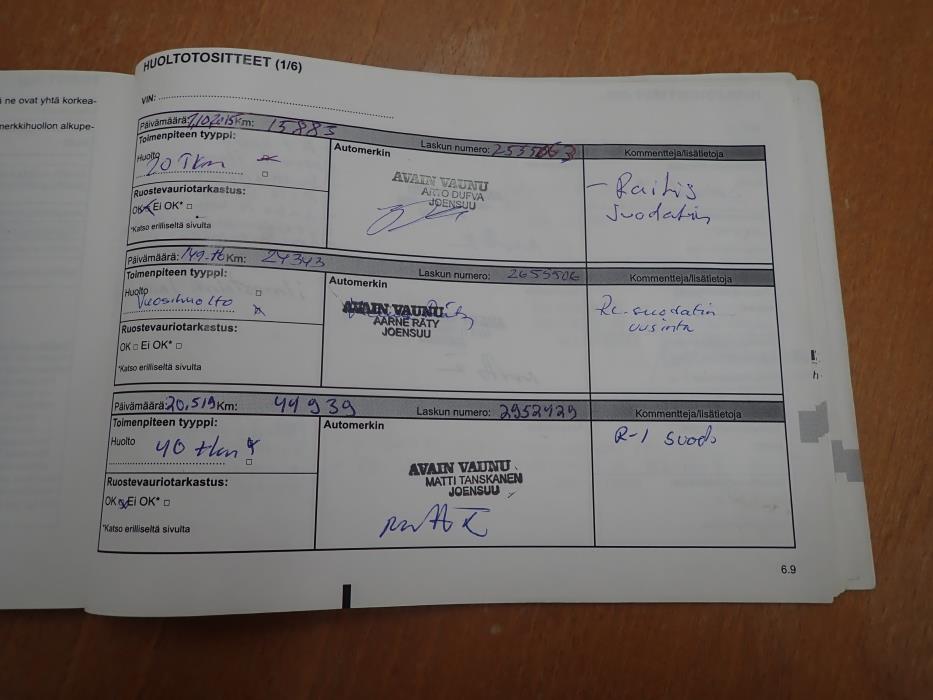 ä ne ovat yhtä korkea-
merkkihuollon alkupe-
HUOLTOTOSITTEET (1/6)
VIN:
Päivämäärä: Km: 15883
Laskun numero:
Kommentteja/lisätietoja
Toimenpiteen tyyppi:
Huolto
20 Tkm
Ruostevauriotarkastus:
OK Ei OK*
*Katso erilliseltä sivulta
Automerkin
AVAIN VAUNU
ARTO DUFVA
JOENSUU
- Raitis
suodatin
Päivämäärä: Km: 24343
Laskun numero: 2655506
Kommentteja/lisätietoja
Toimenpiteen tyyppi:
Huolto
Vuosihuolto
Ruostevauriotarkastus:
OK Ei OK*
*Katso erilliseltä sivulta
Automerkin
AVAIN VAUNU
AARNE RÄTY
JOENSUU
Ra-suodatin
uusinta
Päivämäärä: 20.519 Km: 44939
Laskun numero: 2952429
Kommentteja/lisätietoja
Toimenpiteen tyyppi:
Huolto
40 tkm
Ruostevauriotarkastus:
OK Ei OK*
*Katso erilliseltä sivulta
Automerkin
AVAIN VAUNU
MATTI TANSKANEN
JOENSUU
R-1 suod.
6.9